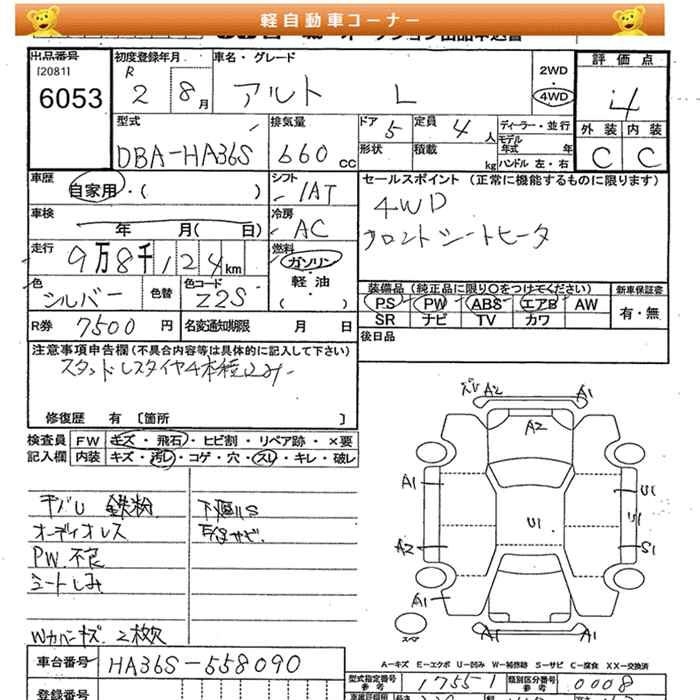 軽自動車コーナー
出品番号 初度登録年月 車名・グレード 2WD 評価点
[2081] R
6053 2 8月 アルト L 4WD 4
型式 排気量 ドア 5 定員 4人 ディーラー・並行 外装 内装
DBA-HA36S 660cc 形状 積載 kg モデル年式 年 C C
ハンドル 左・右
車歴 自家用・( ) シフト IAT セールスポイント (正常に機能するものに限ります)
車検 年 月( 日) 冷房 AC 4WD
走行 9万8千124km 燃料 ガソリン・軽油・( ) フロントシートヒータ
色 シルバー 色替 色コード Z2S 装備品(純正品に限り○をつけてください) 新車保証書
PS PW ABS エアB AW 有・無
R券 7500円 名変通知期限 月 日 SR ナビ TV カワ
後日品
注意事項申告欄(不具合内容等は具体的に記入して下さい)
スタッドレスタイヤ4本積込み
修復歴 有 [箇所 ]
検査員 FW キズ・飛石・ヒビ割・リペア跡・×要
記入欄 内装 キズ・汚レ・コゲ・穴・スレ・キレ・破レ
A2 A1
A2
A1 U1
U1 U1
A2 S1
A1
A1 A1
スペア
鉄粉 下廻りS
オーディオレス
PW.不良
シートしみ
Wカバーキズ 2枚欠
A−キズ E−エクボ U−凹み W−補修跡 S−サビ C−腐食 XX−交換済
車台番号 HA36S-558090 型式指定番号 参考 17551 類別区分番号 参考 0008
登録番号